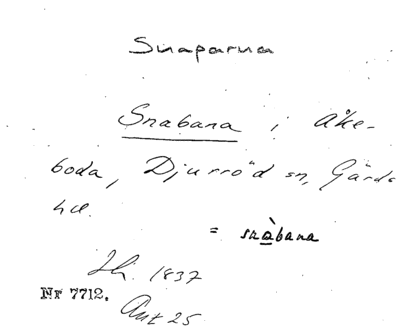 Snaparna
Snabana i Åke-
boda, Djurröd sn, Gärds
hd.
= snàbana
1837
Nr 7712.
Ant 25